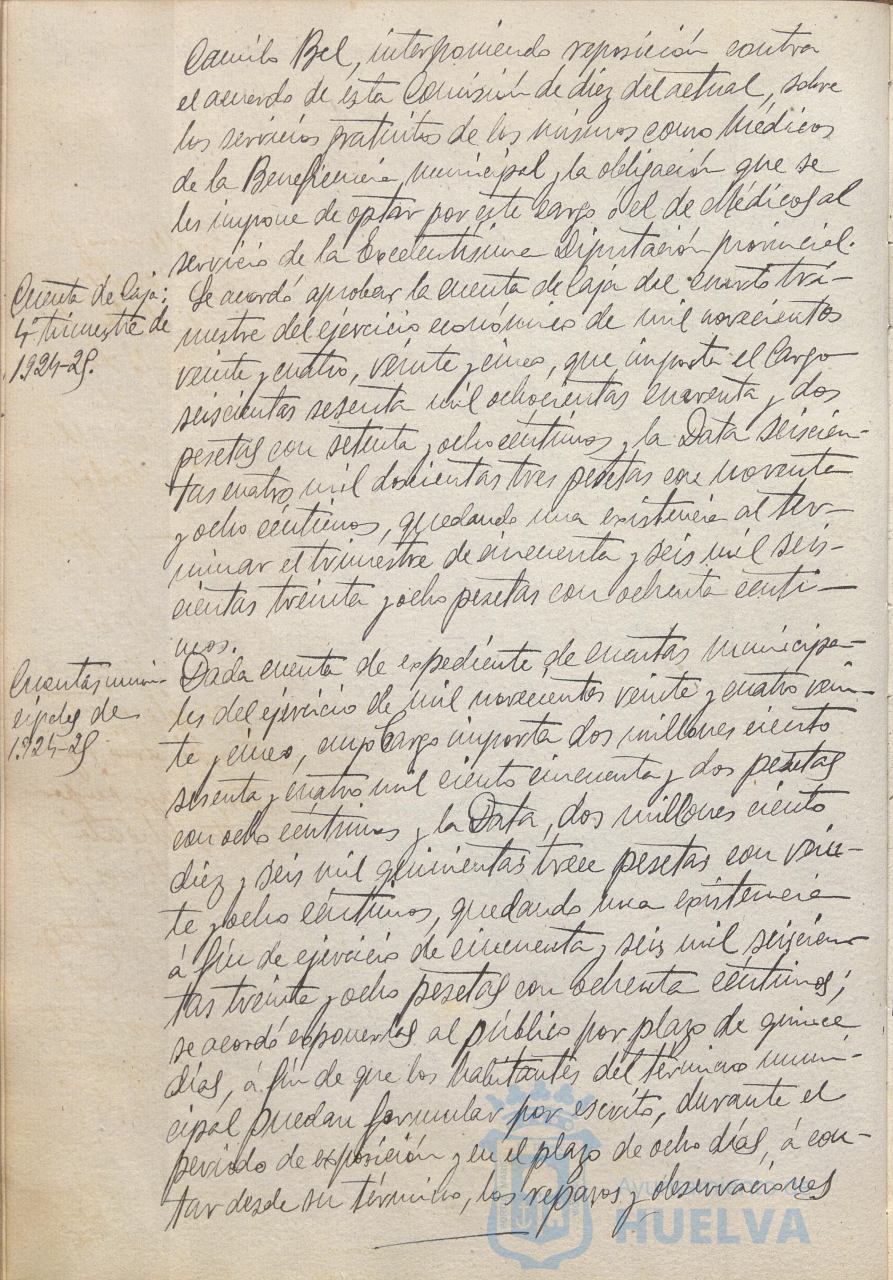 Camilo Bel, interponiendo reposición contra
el acuerdo de ésta Comisión de diez del actual, sobre
los servicios gratuitos de los mismos como Médicos
de la Beneficencia municipal y la obligación que se
les impone de optar por este cargo ó el de Médicos al
servicio de la Excelentísima Diputación provincial.
Cuenta de Caja;
4º trimestre de
1924-25.
Se acordó aprobar la cuenta de Caja del cuarto tri-
mestre del ejercicio económico de mil novecientos
veinte y cuatro, veinte y cinco, que importa el Cargo
seiscientas sesenta mil ochocientas cuarenta y dos
pesetas con setenta y ocho céntimos y la Data seiscien-
tas cuatro mil doscientas tres pesetas con noventa
y ocho céntimos, quedando una existencia al ter-
minar el trimestre de cincuenta y seis mil seis-
cientas treinta y ocho pesetas con ochenta cénti-
mos.
Cuentas muni-
cipales de
1924-25
Dada cuenta de expediente de cuentas municipa-
les del ejercicio de mil novecientos veinte y cuatro vein-
te y cinco, cuyo Cargo importa dos millones ciento
sesenta y cuatro mil ciento cincuenta y dos pesetas
con ocho céntimos y la Data, dos millones ciento
diez y seis mil quinientas trece pesetas con vein-
te y ocho céntimos, quedando una existencia
á fin de ejercicio de cincuenta y seis mil seiscien-
tas treinta y ocho pesetas con ochenta céntimos;
se acordó exponerlas al público por plazo de quince
días, á fin de que los habitantes del término muni-
cipal puedan formular por escrito, durante el
periodo de exposición y en el plazo de ocho días, á con-
tar desde su término, los reparos y observaciones
HUELVA